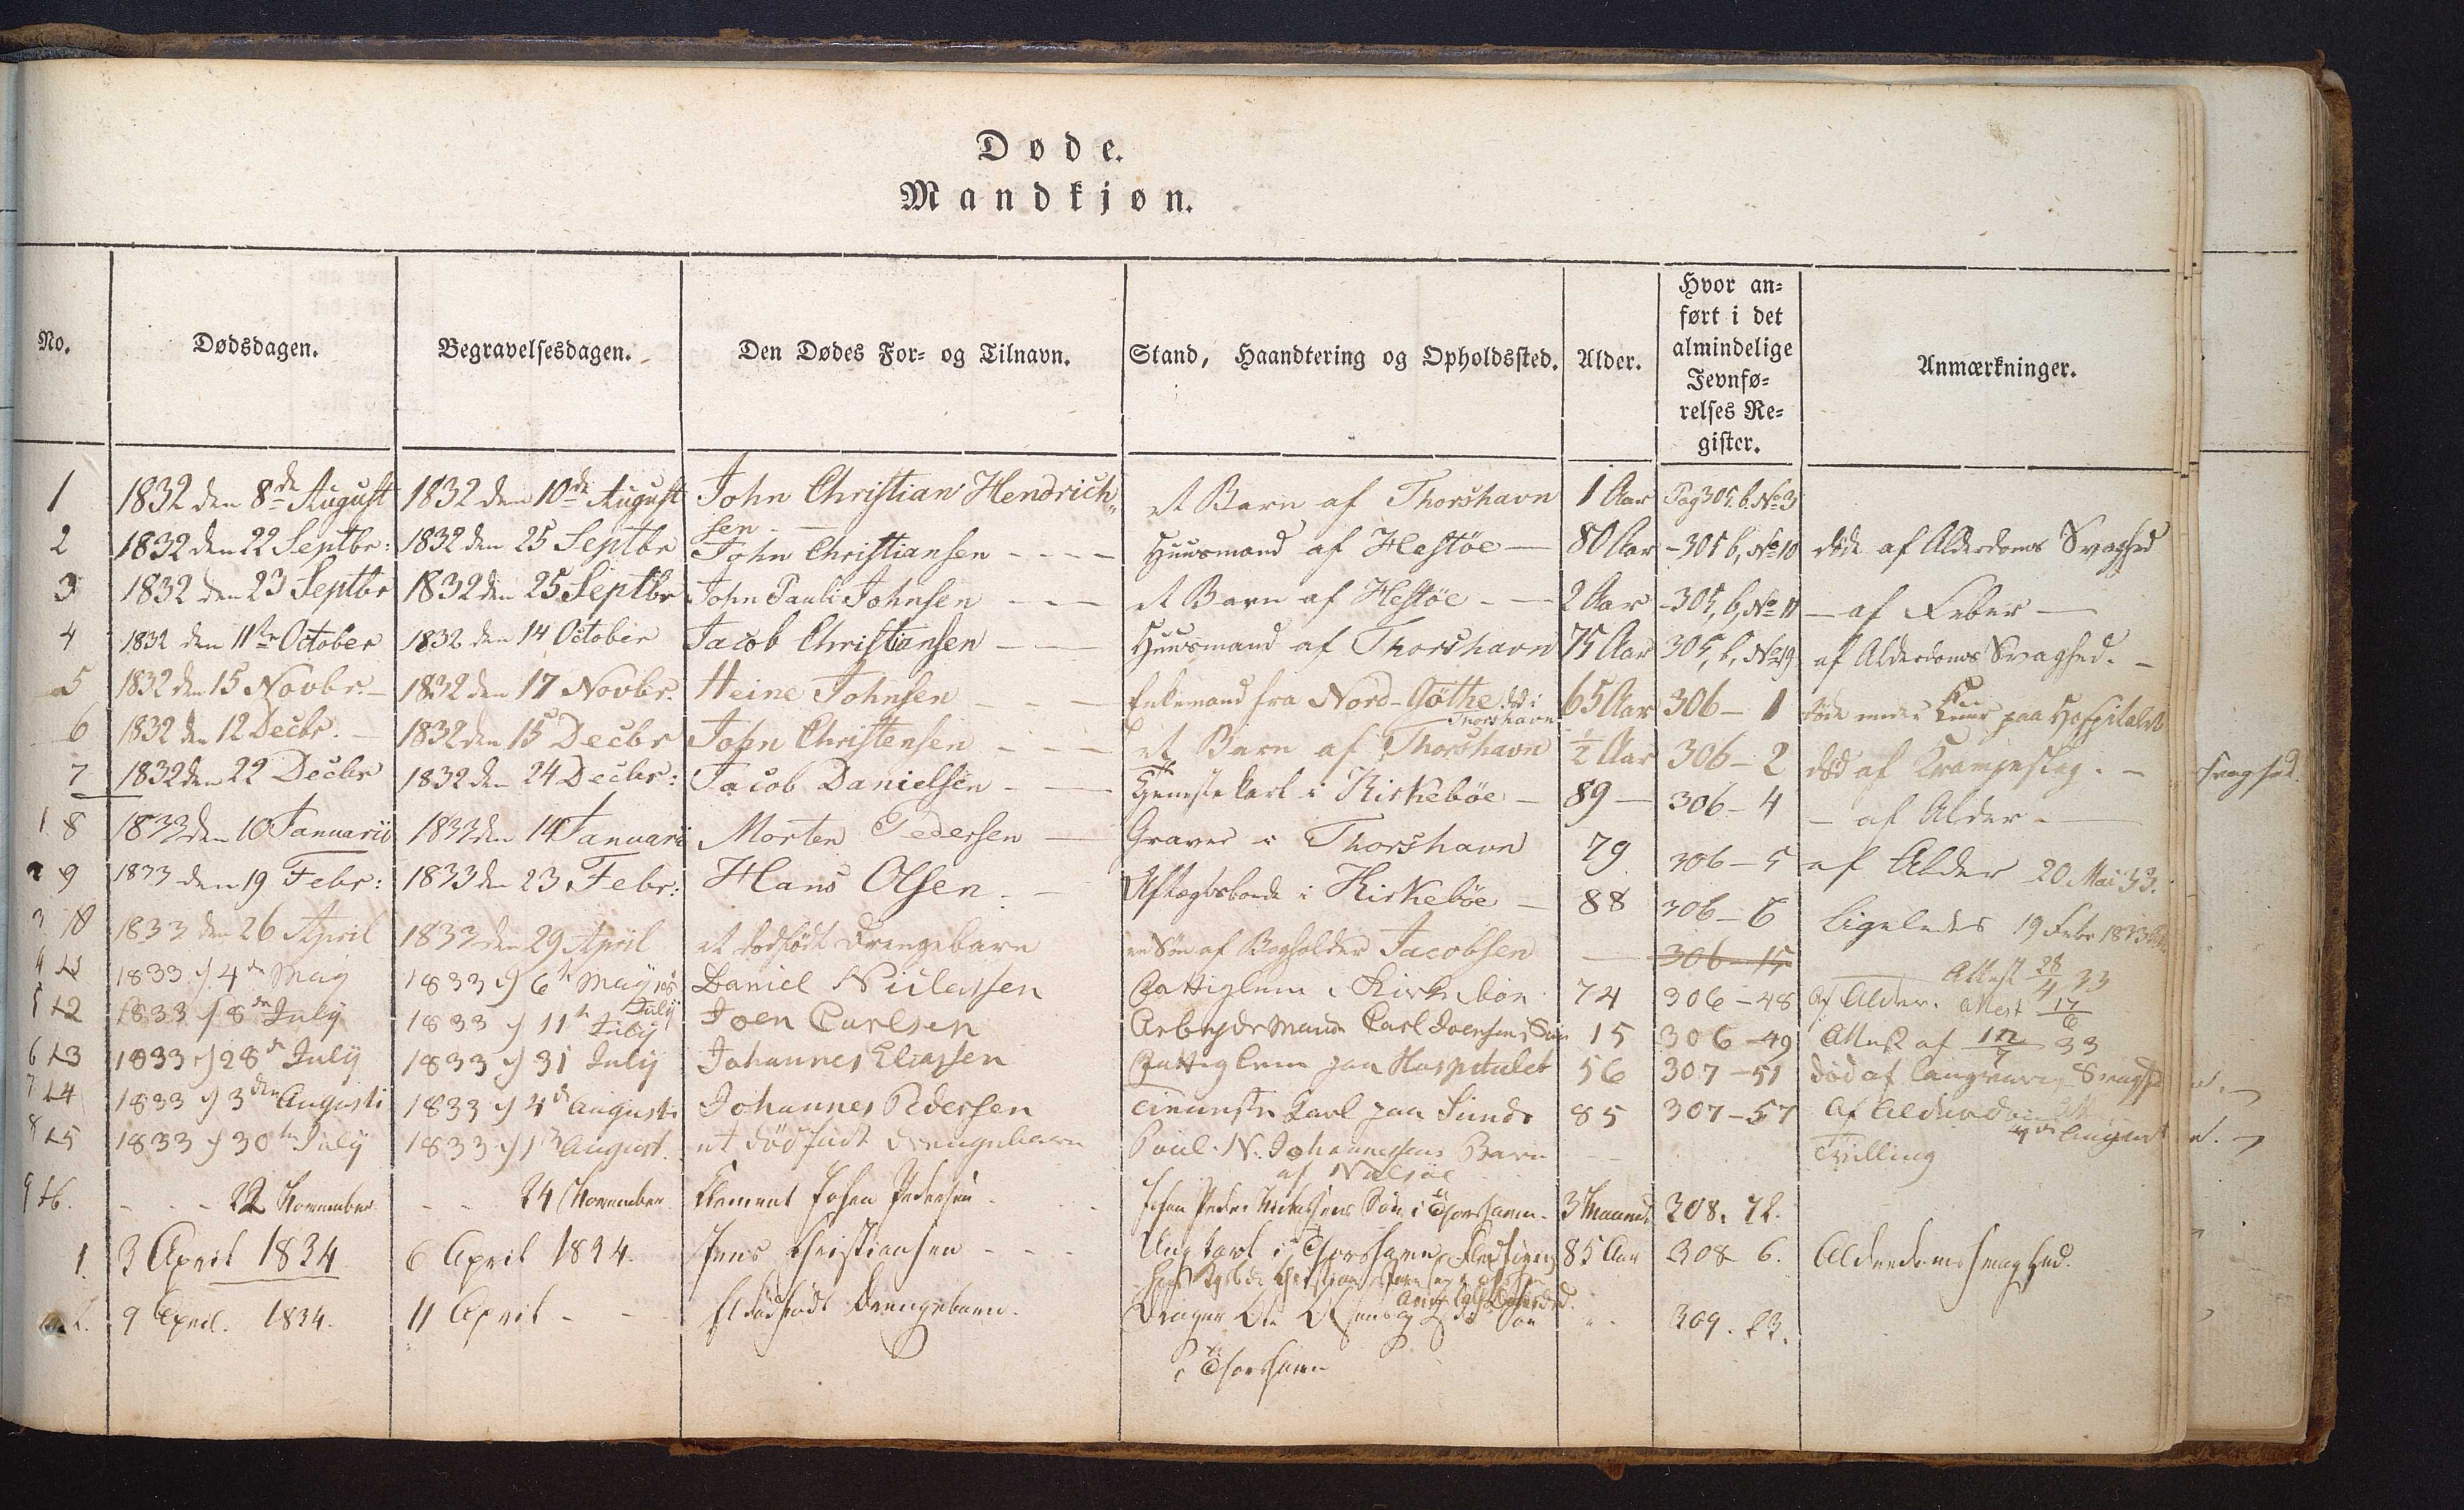 Døde.
Mandkjøn.
No. Dødsdagen. Begravelsesdagen. Den Dødes For- og Tilnavn. Stand, Haandtering og Opholdssted. Alder. Hvor an-
ført i det
almindelige
Jevnfø-
relses Re-
gister. Anmærkninger.
1 1832 den 8de August 1832 den 10de August John Christian Hendrich„ et Barn af Thorshavn 1 Aar Pag 305. b. No 3
sen
2 1832 den 22 Septbr: 1832 den 25 Septbr John Christiansen Huusmand af Hestøe 80 Aar - 305 b, No 10 døde af Alderdoms Svaghed
3 1832 den 23 Septbr 1832 den 25 Septbr John Pauli Johnsen et Barn af Hestøe 2 Aar - 305, b, No 11 — af Feber —
4 1832 den 11te October 1832 den 14 October Jacob Christiansen Huusmand af Thorshavn 75 Aar 305, b, No 19 af Alderdoms Svaghed.
5 1832 den 15 Novbr. 1832 den 17 Novbr. Heine Johnsen Enkemand fra Nord-Gøthe død i 65 Aar 306 - 1 døde under Kuur paa Hospitalet
Thorshavn
6 1832 den 12 Decbr. 1832 den 15 Decbr John Christensen et Barn af Thorshavn ½ Aar 306 - 2 død af Krampeslag.
7 1832 den 22 Decbr 1832 den 24 Decbr: Jacob Danielsen Tjenestekarl i Kirkebøe 89 — 306 - 4 — af Alder. —
1. 8 1833 den 10 Januarii 1833 den 14 Januari Morten Pedersen Graver i Thorshavn 79 306 - 5 af Alder 20 Mai 33.
2 9 1833 den 19 Febr: 1833 den 23 Febr: Hans Olsen Aftægtsbonde i Kirkebøe 88 306 - 6 Ligeledes 19 Febr 1833
3. 10 1833 den 26 April 1833 den 29 April et dødfødt Drengebarn en Søn af Bogholder Jacobsen — 306 - 15
Attest 28/4 33
4 11 1833 4de May 1833 6te May Daniel Niclassen Fattiglem i Kirkebøe 74 306 - 48 Af Alder. Attest 17/6
5 12 1833 8de July 1833 11te July July Joen Carlsen Arbeydsmand Carl Joensens Søn 15 306 - 49 Attest af 12/7 33
6 13 1833 28de July 1833 31 July Johannes Eliassen Fattiglem paa Hospitalet 56 307 - 51 død af langvarig Svaghed
7 14 1833 3den Augusti 1833 4de Augusti Johannes Pedersen Tieneste Karl paa Sunde 85 307 - 57 Af Alderdom
4de August
8 15 1833 30te July 1833 1te August. et dødfødt Drengebarn Poul. N. Johannessens Barn Tvilling
af Nalsøe
9 16. - - - 22 November - - 24 November Klement Johan Pedersen. Johan Peder Nickelsens Søn i Thorshavn. 3 Maaned 308. 72.
1. 3 April 1834 6 April 1834. Jens Christiansen Ungkarl i Thorshavn 85 Aar 308 6. Alderdomssvaghed.
2. 9 April. 1834. 11 April Et dødfødt Drengebarn. Ole Olsens Søn 309. 23.
i Thorshavn
svaghed.